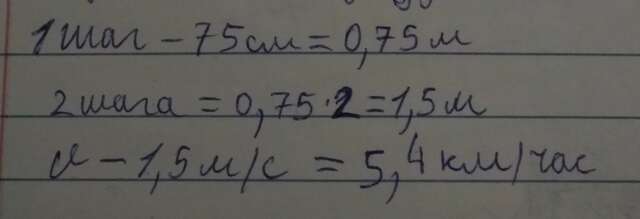 1 шаг – 75 см = 0,75 м
2 шага = 0,75 · 2 = 1,5 м
v – 1,5 м/с = 5,4 км/час